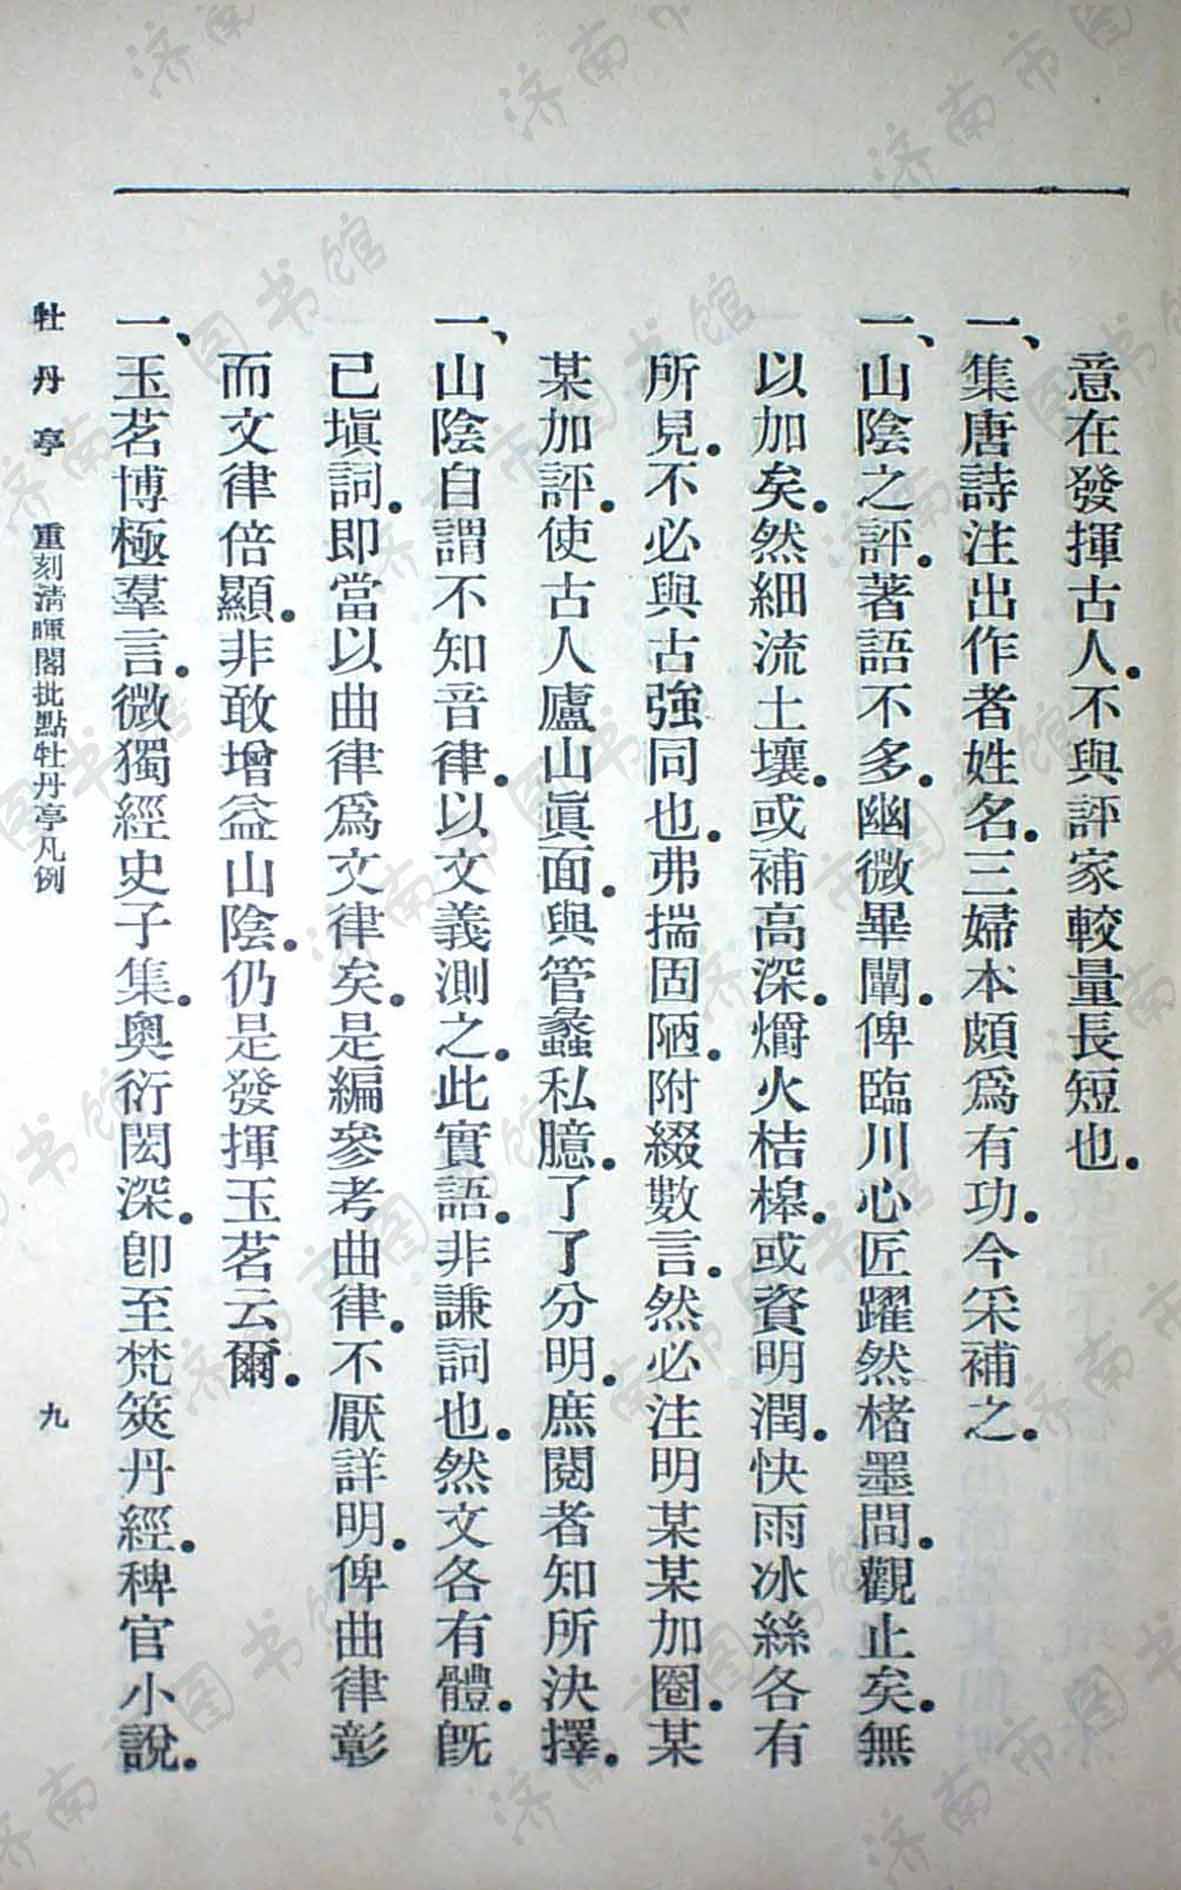 意在發揮古人．不與評家較量長短也．
一、集唐詩注出作者姓名．三婦本頗爲有功．今采補之．
一、山陰之評．著語不多．幽微畢闡．俾臨川心匠躍然楮墨間．觀止矣．無
以加矣．然細流土壤．或補高深．爝火桔槔．或資明潤．快雨冰絲各有
所見．不必與古強同也．弗揣固陋．附綴數言．然必注明某某加圈．某
某加評．使古人廬山眞面．與管蠡私臆．了了分明．庶閱者知所決擇．
一、山陰自謂不知音律．以文義測之．此實語．非謙詞也．然文各有體．旣
已塡詞．即當以曲律爲文律矣．是編參考曲律．不厭詳明．俾曲律彰
而文律倍顯．非敢增益山陰．仍是發揮玉茗云爾．
一、玉茗博極羣言．微獨經史子集．奧衍閎深．卽至梵筴丹經．稗官小說．
牡丹亭　重刻淸暉閣批點牡丹亭凡例　九
济南市图书馆